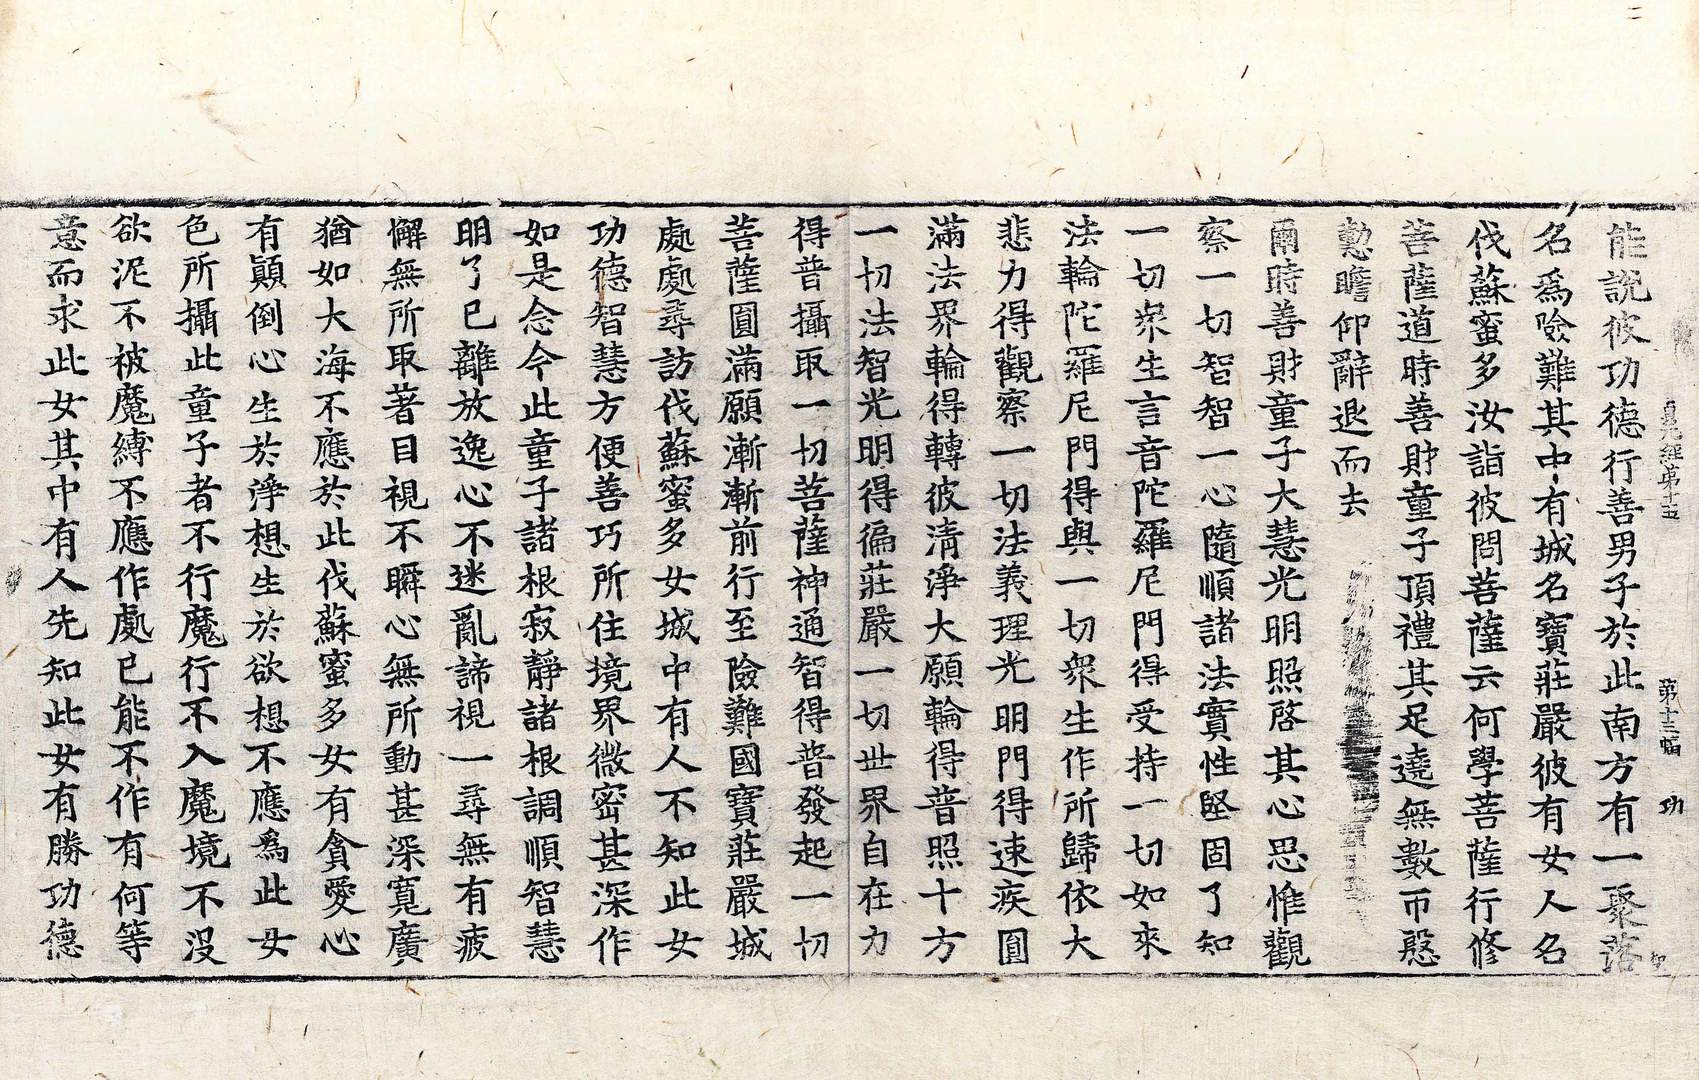 貞元經第十五　第十三幅　功
能說彼功德行善男子於此南方有一聚落
名爲險難其中有城名寶莊嚴彼有女人名
伐蘇蜜多汝詣彼問菩薩云何學菩薩行修
菩薩道時善財童子頂禮其足遶無數帀慇
懃瞻仰辭退而去
爾時善財童子大慧光明照啓其心思惟觀
察一切智智一心隨順諸法實性堅固了知
一切衆生言音陀羅尼門得受持一切如來
法輪陀羅尼門得與一切衆生作所歸依大
悲力得觀察一切法義理光明門得速疾圓
滿法界輪得轉彼清淨大願輪得普照十方
一切法智光明得徧莊嚴一切世界自在力
得普攝取一切菩薩神通智得普發起一切
菩薩圓滿願漸漸前行至險難國寶莊嚴城
處處尋訪伐蘇蜜多女城中有人不知此女
功德智慧方便善巧所住境界微密甚深作
如是念今此童子諸根寂靜諸根調順智慧
明了已離放逸心不迷亂諦視一尋無有疲
懈無所取著目視不瞬心無所動甚深寬廣
猶如大海不應於此伐蘇蜜多女有貪愛心
有顚倒心生於淨想生於欲想不應爲此女
色所攝此童子者不行魔行不入魔境不沒
欲泥不被魔縛不應作處已能不作有何等
意而求此女其中有人先知此女有勝功德